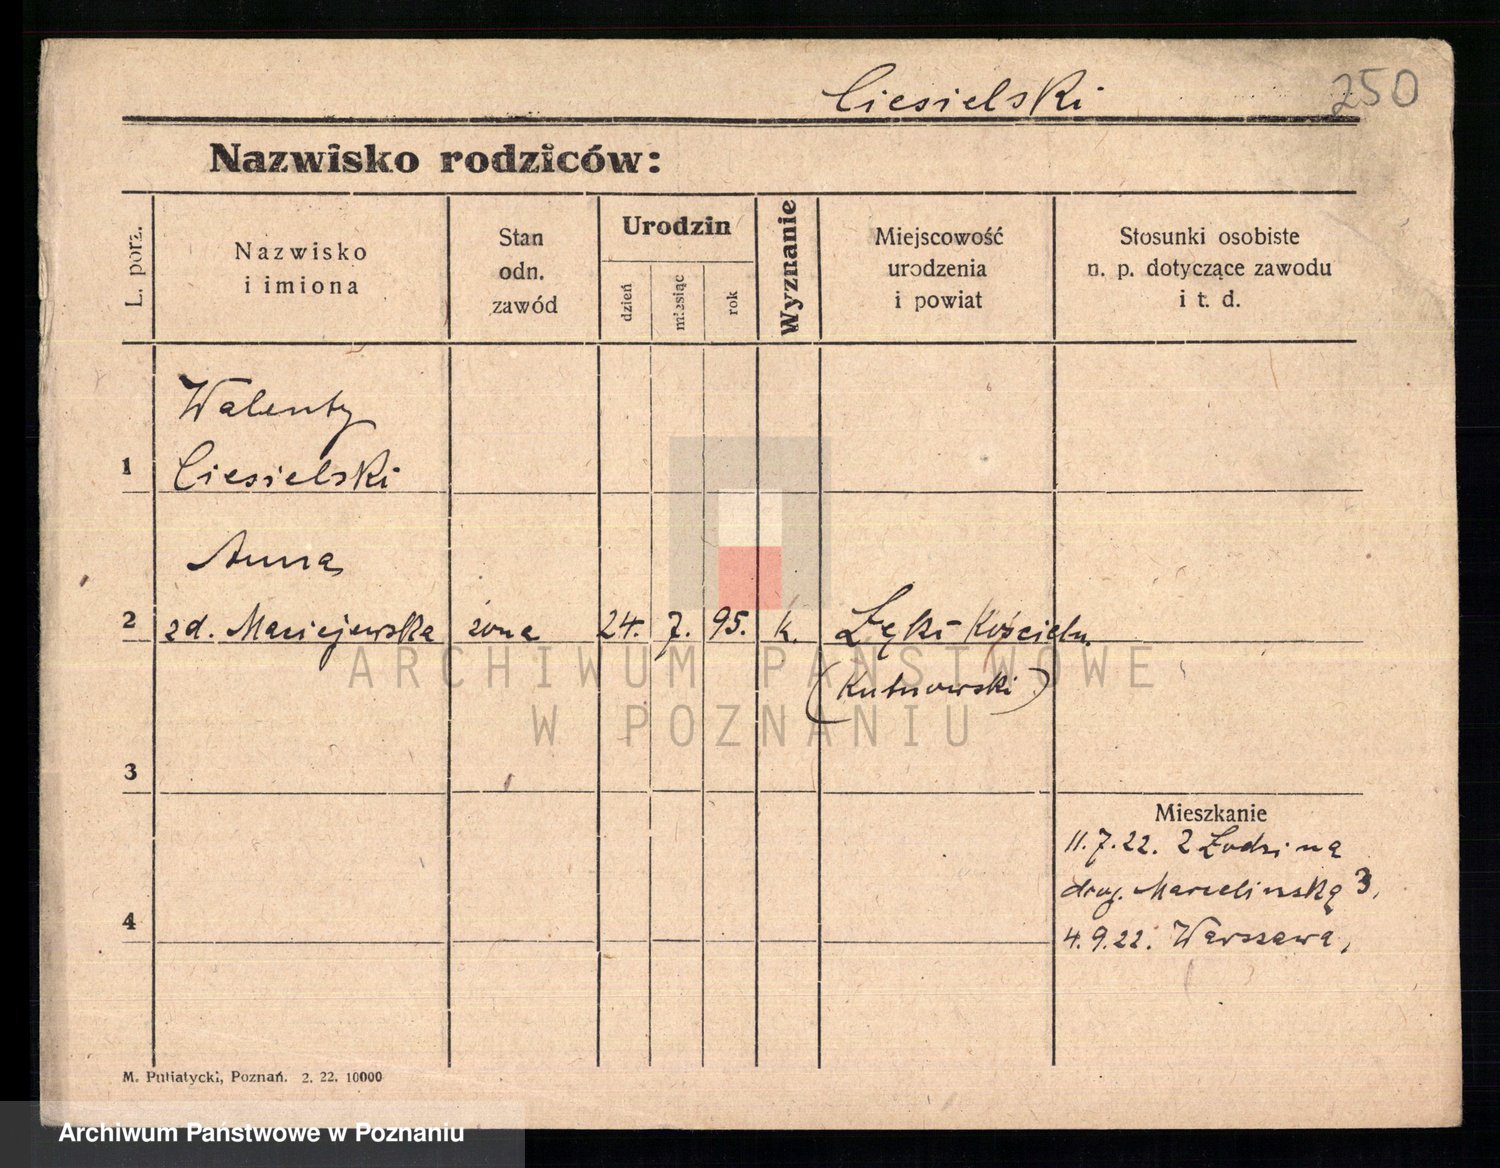 Ciesielski
250
Nazwisko rodziców:
L. porz.
Nazwisko
i imiona
Stan
odn.
zawód
Urodzin
dzień
miesiąc
rok
Wyznanie
Miejscowość
urodzenia
i powiat
Stosunki osobiste
n. p. dotyczące zawodu
i t. d.
1
Walenty
Ciesielski
2
Anna
zd. Maciejewska
żona
24.
7.
95.
k.
Łęki-Kościeln.
(Kutnowski)
3
4
Mieszkanie
11.7.22. z Łodzi na
drog. Marcelinską 3.
4.9.22. Warszawa,
M. Putiatycki, Poznań. 2. 22. 10000
ARCHIWUM PAŃSTWOWE
W POZNANIU
Archiwum Państwowe w Poznaniu